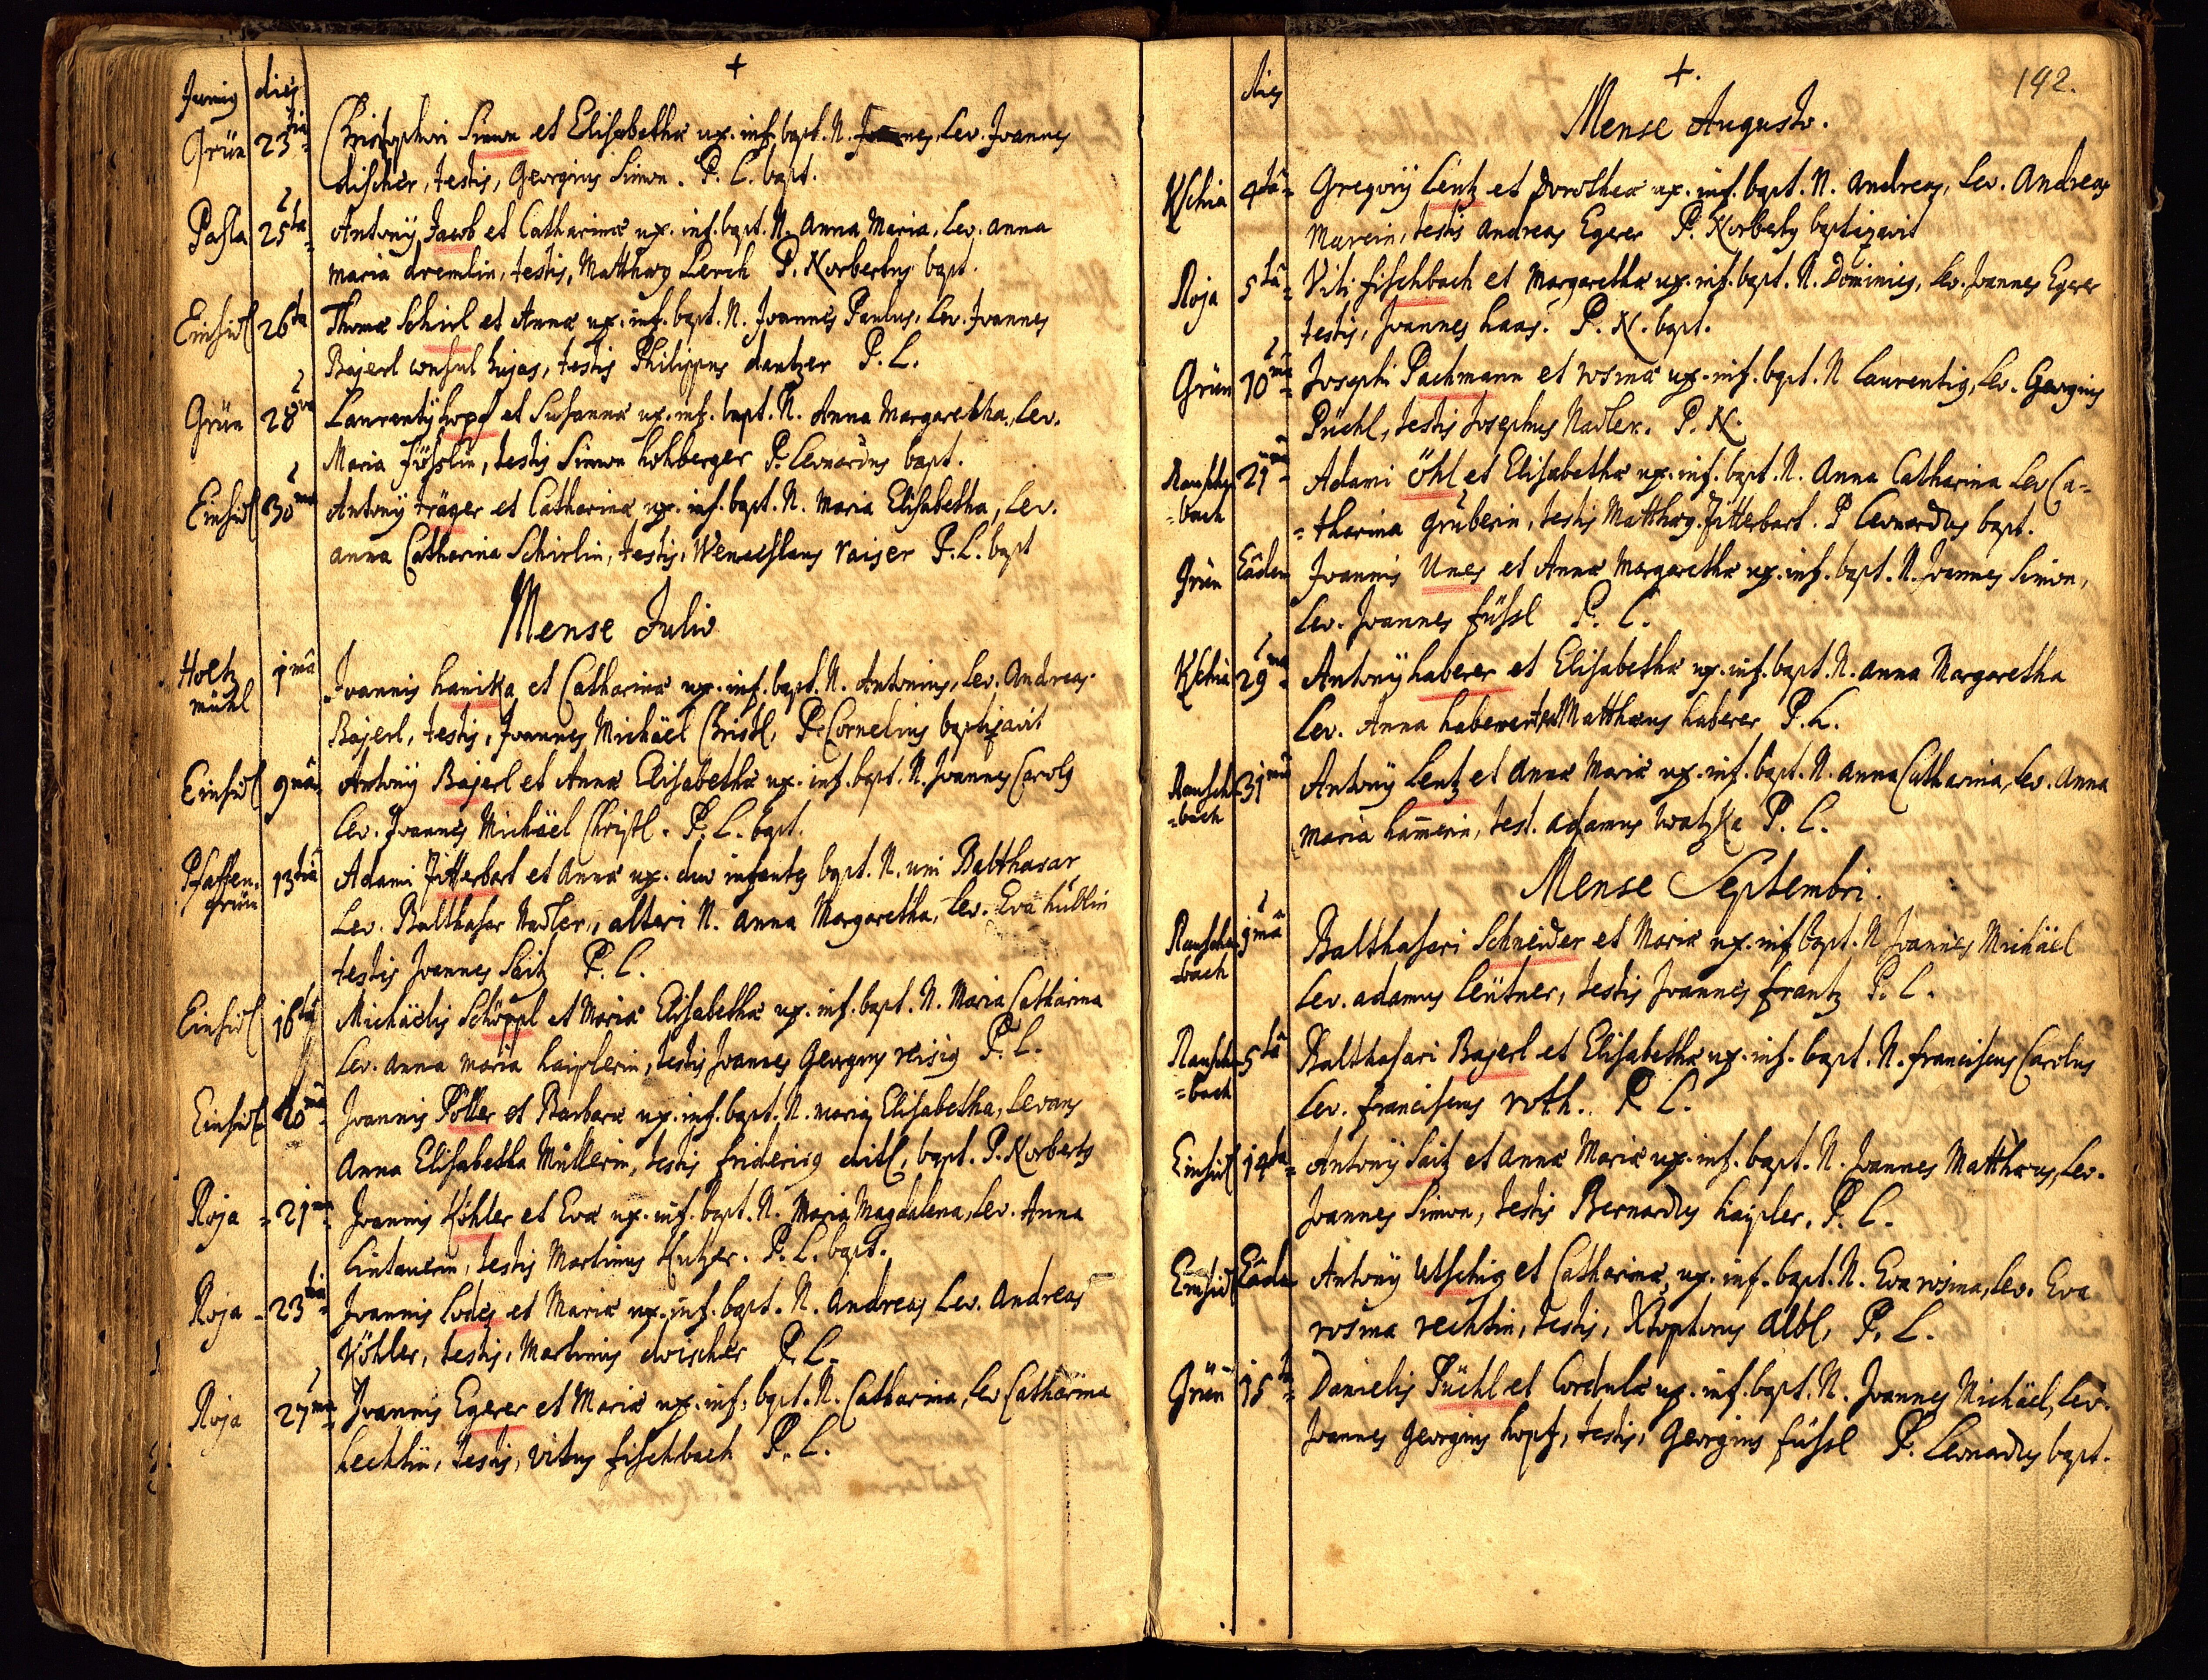 +
Junig dies
Grün 23tia Christophori Simon et Elisabethæ ux. inf. bapt. N. Joannes, Lev. Joannes
discher, testis, Georgius Simon. P. L. bapt.
Pasla 25ta Antonÿ Jacob et Catharinæ ux. inf. bapt. N. Anna Maria, Lev. anna
maria dremlin, testis, Matthæg Lerch P. Norbertus bapt.
Einsidl 26ta Thomæ Schirl et Annæ ux. inf. bapt. N. Joannes Paulus, Lev. Joannes
Bajerl consul hujas, testis Philippus dantzer P. L.
Grün 28va Laurentÿ hopf et Susannæ ux. inf. bapt. N. Anna Margaretha, Lev.
Maria Füsslin, testis Simon hohberger P. Leonardus bapt.
Einsidl 30ma Antonÿ träger et Catharinæ ux. inf. bapt. N. Maria Elisabetha, Lev.
anna Catharina Schirlin, testis, Wenceslaus raiser P. L. bapt
Mense Julio
Holtz mühl 1mâ Joannis hanika et Catharinæ ux. inf. bapt. N. Antonius, Lev. Andreas
Bajerl, testis, Joannes Michäel Christl, P. Cornelius baptizavit
Einsidl 9nâ Antonÿ Bajerl et Annæ Elisabethæ ux. inf. bapt. N. Joannes Carolg
Lev. Joannes Michäel Christl. P. L. bapt.
Pfaffen. grün 13tiâ Adami Fitterbart et Annæ ux. duo infantes bapt. N. uni Balthasar
Lev. Balthasar Nadler, alteri N. Anna Margaretha, Lev. Eva hüblin
testis Joannes Saitz P. L.
Einsidl 16tâ Michäelis Schöppl et Mariæ Elisabethæ ux. inf. bapt. N. Maria Catharina
Lev. anna maria haiplerin, testis Joannes Georgius reisig P. L.
Einsidl 20mâ Joannis Pöller et Barbaræ ux. inf. bapt. N. maria Elisabetha, Levans
Anna Elisabetha Müllerin, testis fridericg ditl, bapt. P. Norbertg
Roja 21ma Joannis Köhler et Evæ ux. inf. bapt. N. Maria Magdalena, Lev. Anna
Lintauerin, testis Martinus Hutzer. P. L. bapt.
Roja 23tiâ Joannis Lodes et Mariæ ux. inf. bapt. N. Andreas Lev. Andreas
Köhler, testis, Martinus discher P. L.
Roja 27ma Joannis Egerer et Mariæ ux. inf. bapt. N. Catharina, Lev Catharina
hechtin, testis, vitus fischbach P. L.
+. 192.
dies
Mense Augusto.
Kschia 4tâ Gregorÿ Lentz et Dorotheæ ux. inf. bapt. N. Andreas, Lev. Andreas
Marein, testis Andreas Egerer P. Norbertg baptizavit
Roja 5tâ Viti fischbach et Margarethæ ux. inf. bapt. N. Dominicg, Lev. Joannes Egerer
testis, Joannes haas. P. N. bapt.
Grün 10mâ Josephi Pachmann et rosinæ ux. inf. bapt. N Laurentig, Lev. Georgius
Püchl, testis Josephus Nadler. P. N.
Rauschen =bach 21mâ Adami Öhl et Elisabethæ ux. inf. bapt. N. Anna Catharina Lev Ca=
=tharina Gruberin, testis Matthæg Fitterbart. P Leonardus bapt.
Grün Eâdem Joannis Unes et Annæ Margarethæ ux. inf. bapt. N. Joannes Simon,
Lev. Joannes füssl P. L.
Kschia 29na Antonÿ haberer et Elisabethæ ux. inf. bapt. N. anna Margaretha
Lev. Anna Matthæus haberer P. L.
Rausch =bach 31mâ Antonÿ Lentz et Annæ Mariæ ux. inf. bapt. N. Anna Catharina, Lev. Anna
maria ham̄erin, test. adamus watzka P. L.
Mense Septembri.
Rauschn =bach 1mâ Balthasari Schneider et Mariæ ux. inf bapt. N Joannes Michäel
Lev. adamus leütner, testis Joannes frantz P. L.
Rauschn =bach 5tâ Balthasari Bajerl et Elisabethæ ux. inf. bapt. N. franciscus Carolus
Lev. franciscus roth. P. L.
Einsidl 14ta Antonÿ Saitz et Annæ Mariæ ux. inf. bapt. N. Joannes Matthæus, Lev.
Joannes Simon, testis Bernardus haipler. P. L.
Einsidl Eâdem Antonÿ Utschig et Catharinæ, ux. inf. bapt. N. Eva rosina, Lev. Eva
rosina rechtin, testis, Xstophorus albl, P. L.
Grün 15tâ Danielis Püchl et Cordulæ ux. inf. bapt. N. Joannes Michäel, Lev.
Joannes Georgius hopf, testis, Georgius füssl P. Leonardus bapt.